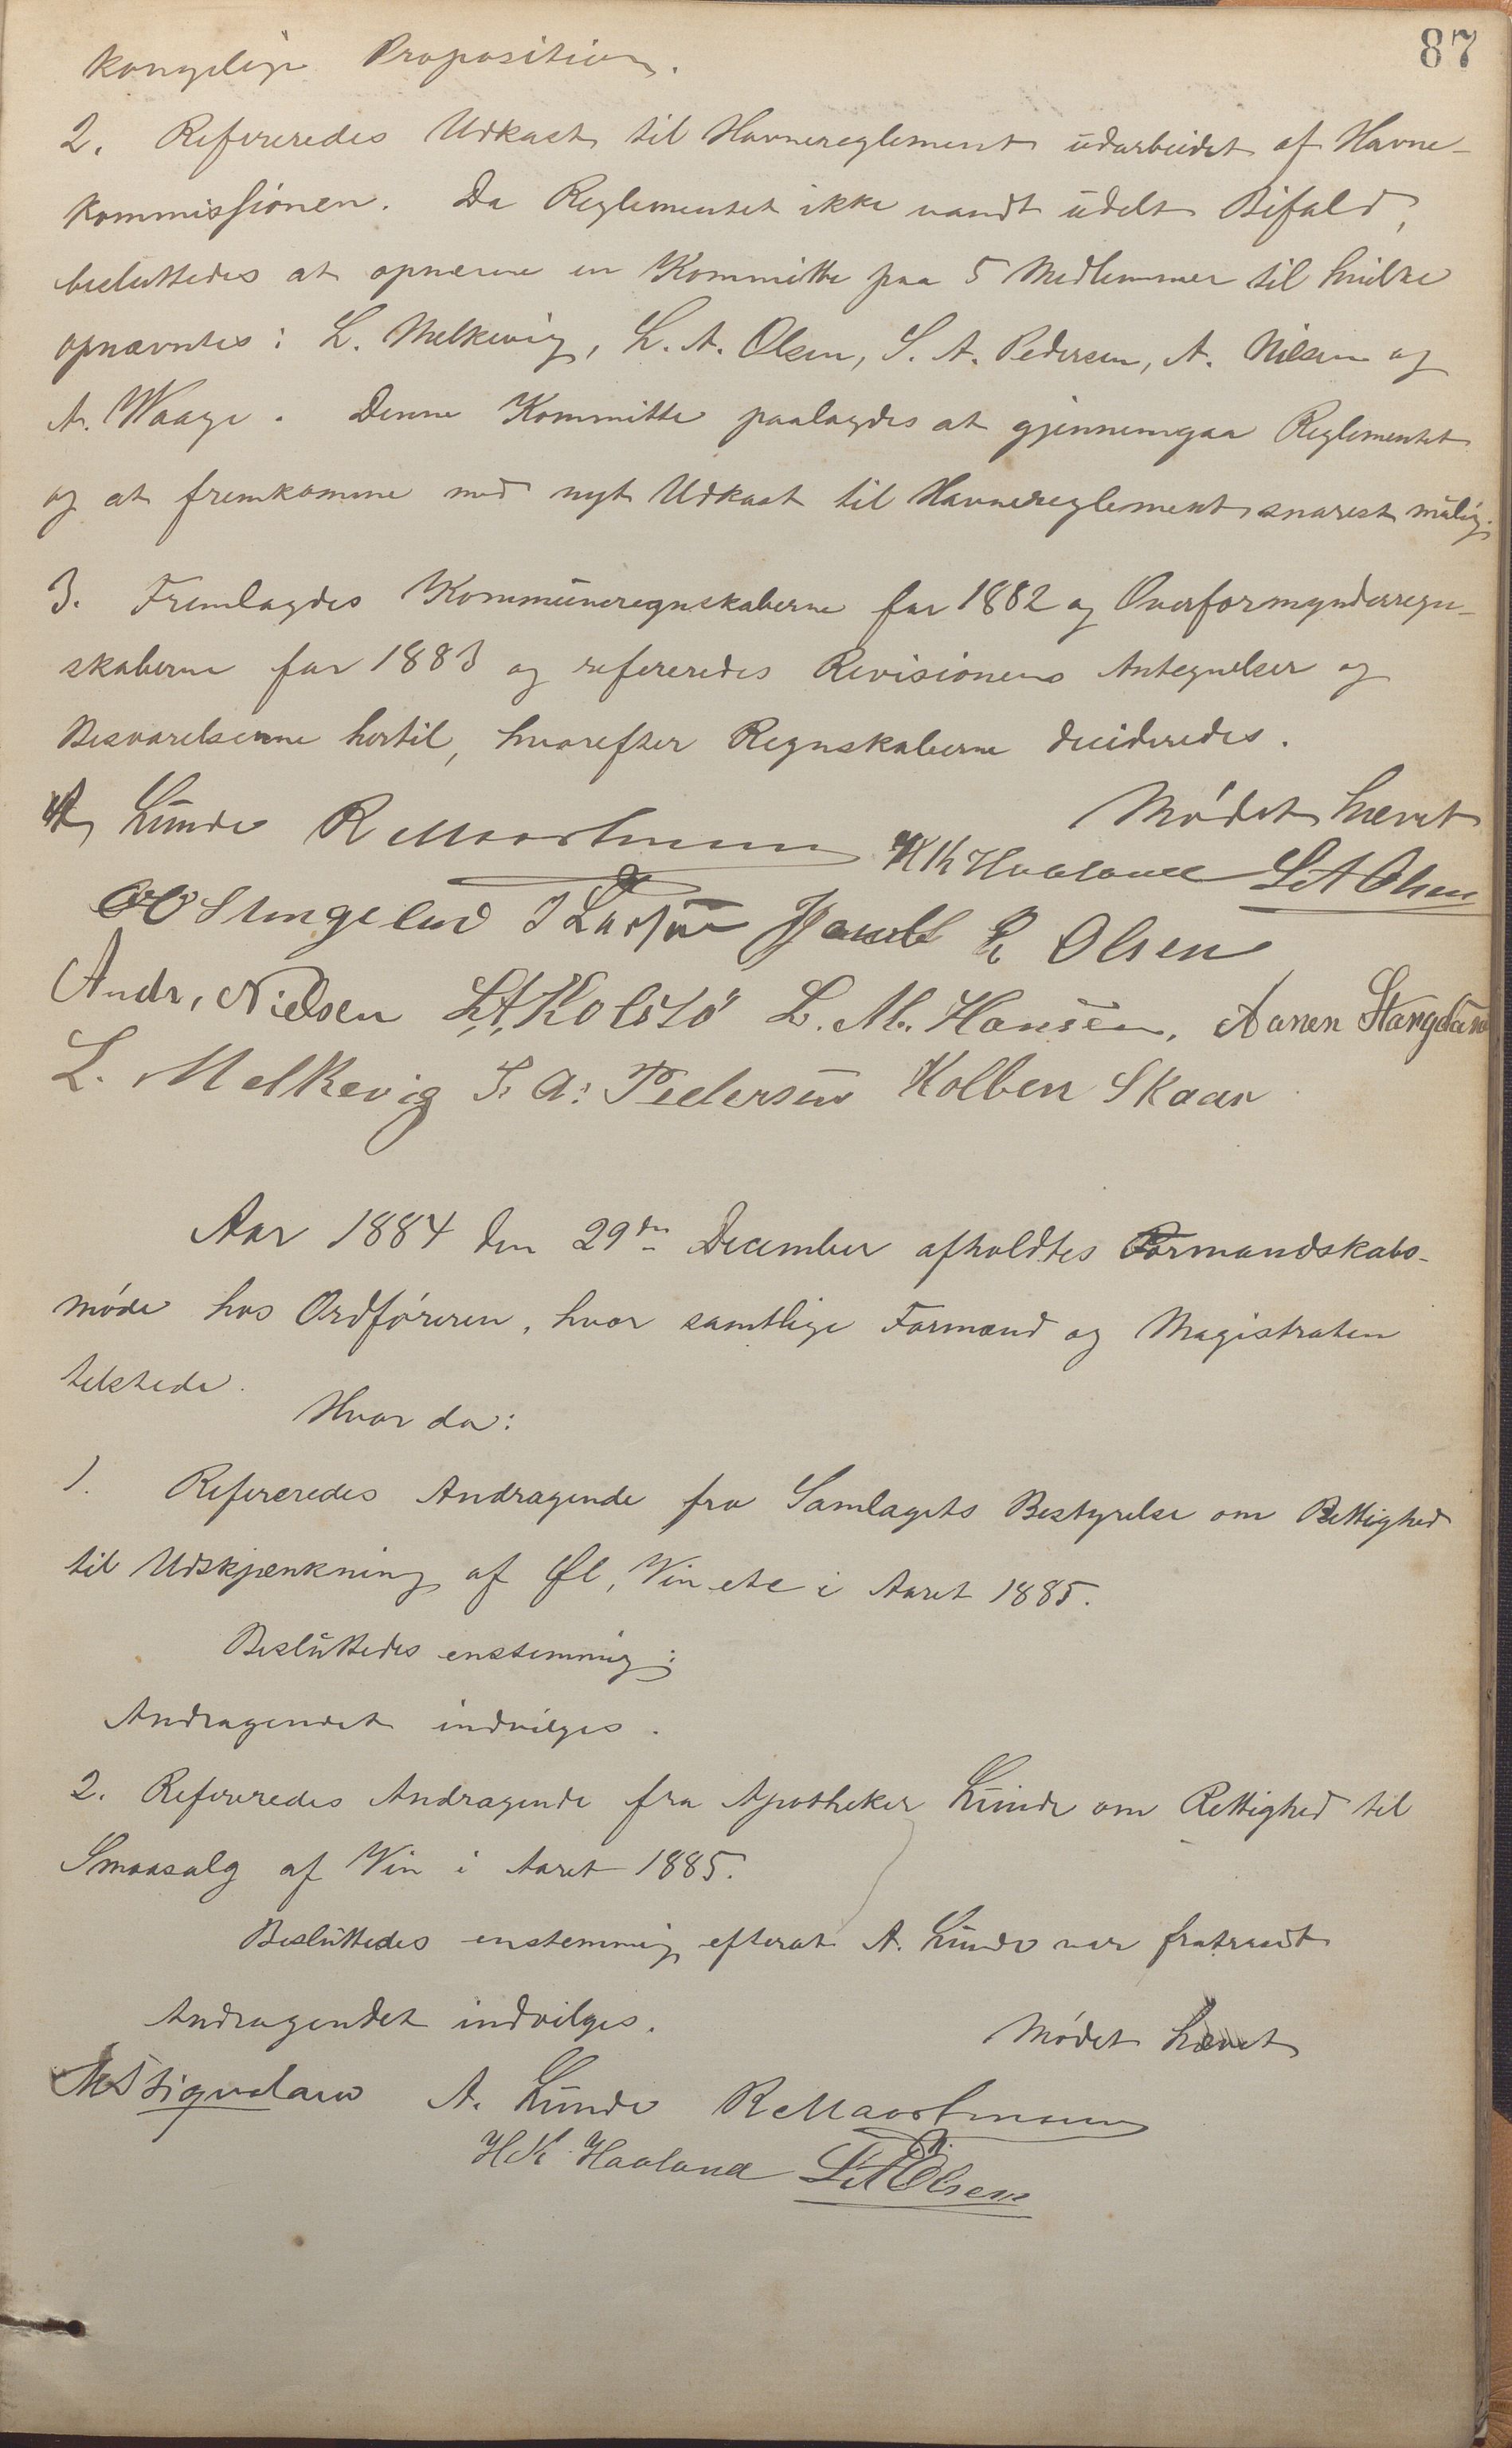 87
kongelige Proposition.
2. Refereredes Udkast til Havnereglement udarbeidet af Havne-
kommissionen. Da Reglementet ikke vandt udelt Bifald,
besluttedes at opnævne en Kommitte paa 5 Medlemmer til hvilke
opnævntes: L. Melkevig, L. A. Olsen, S. A. Pedersen, A. Nilsen og
A. Waage. Denne Kommitte paalagdes at gjennemgaa Reglementet
og at fremkomme med nyt Udkast til Havnereglement snarest mulig.
3. Fremlagdes Kommuneregnskaberne for 1882 og Overformynderregn-
skaberne for 1883 og refereredes Revisionens Antegnelser og
Besvarelserne hertil, hvorefter Regnskaberne decideredes.
Mødet hævet
A Lunde R Maarhuus H Kr Haaland L A Olsen
Stangeland J Larsen Jacob R Olsen
Andr. Nielsen L. A. Kolstø L. M. Hansen. Aanen Stangeland
L. Melkevig S. A. Pedersen Kolben Skaar
Aar 1884 den 29de December afholdtes Formandskabs-
møde hos Ordføreren, hvor samtlige Formænd og Magistraten
tilstede.
Hvor da:
1. Refereredes Andragende fra Samlagets Bestyrelse om Rettighed
til Udskjænkning af Øl, Vin etc i Aaret 1885.
Besluttedes enstemmig:
Andragendet indvilges.
2. Refereredes Andragende fra Apotheker Lunde om Rettighed til
Smaasalg af Vin i Aaret 1885.
Besluttedes enstemmig, efterat A. Lunde var fratraadt
Andragendet indvilges.
Mødet hævet
A. Lunde R Maarhuus
H Kr Haaland L A Olsen